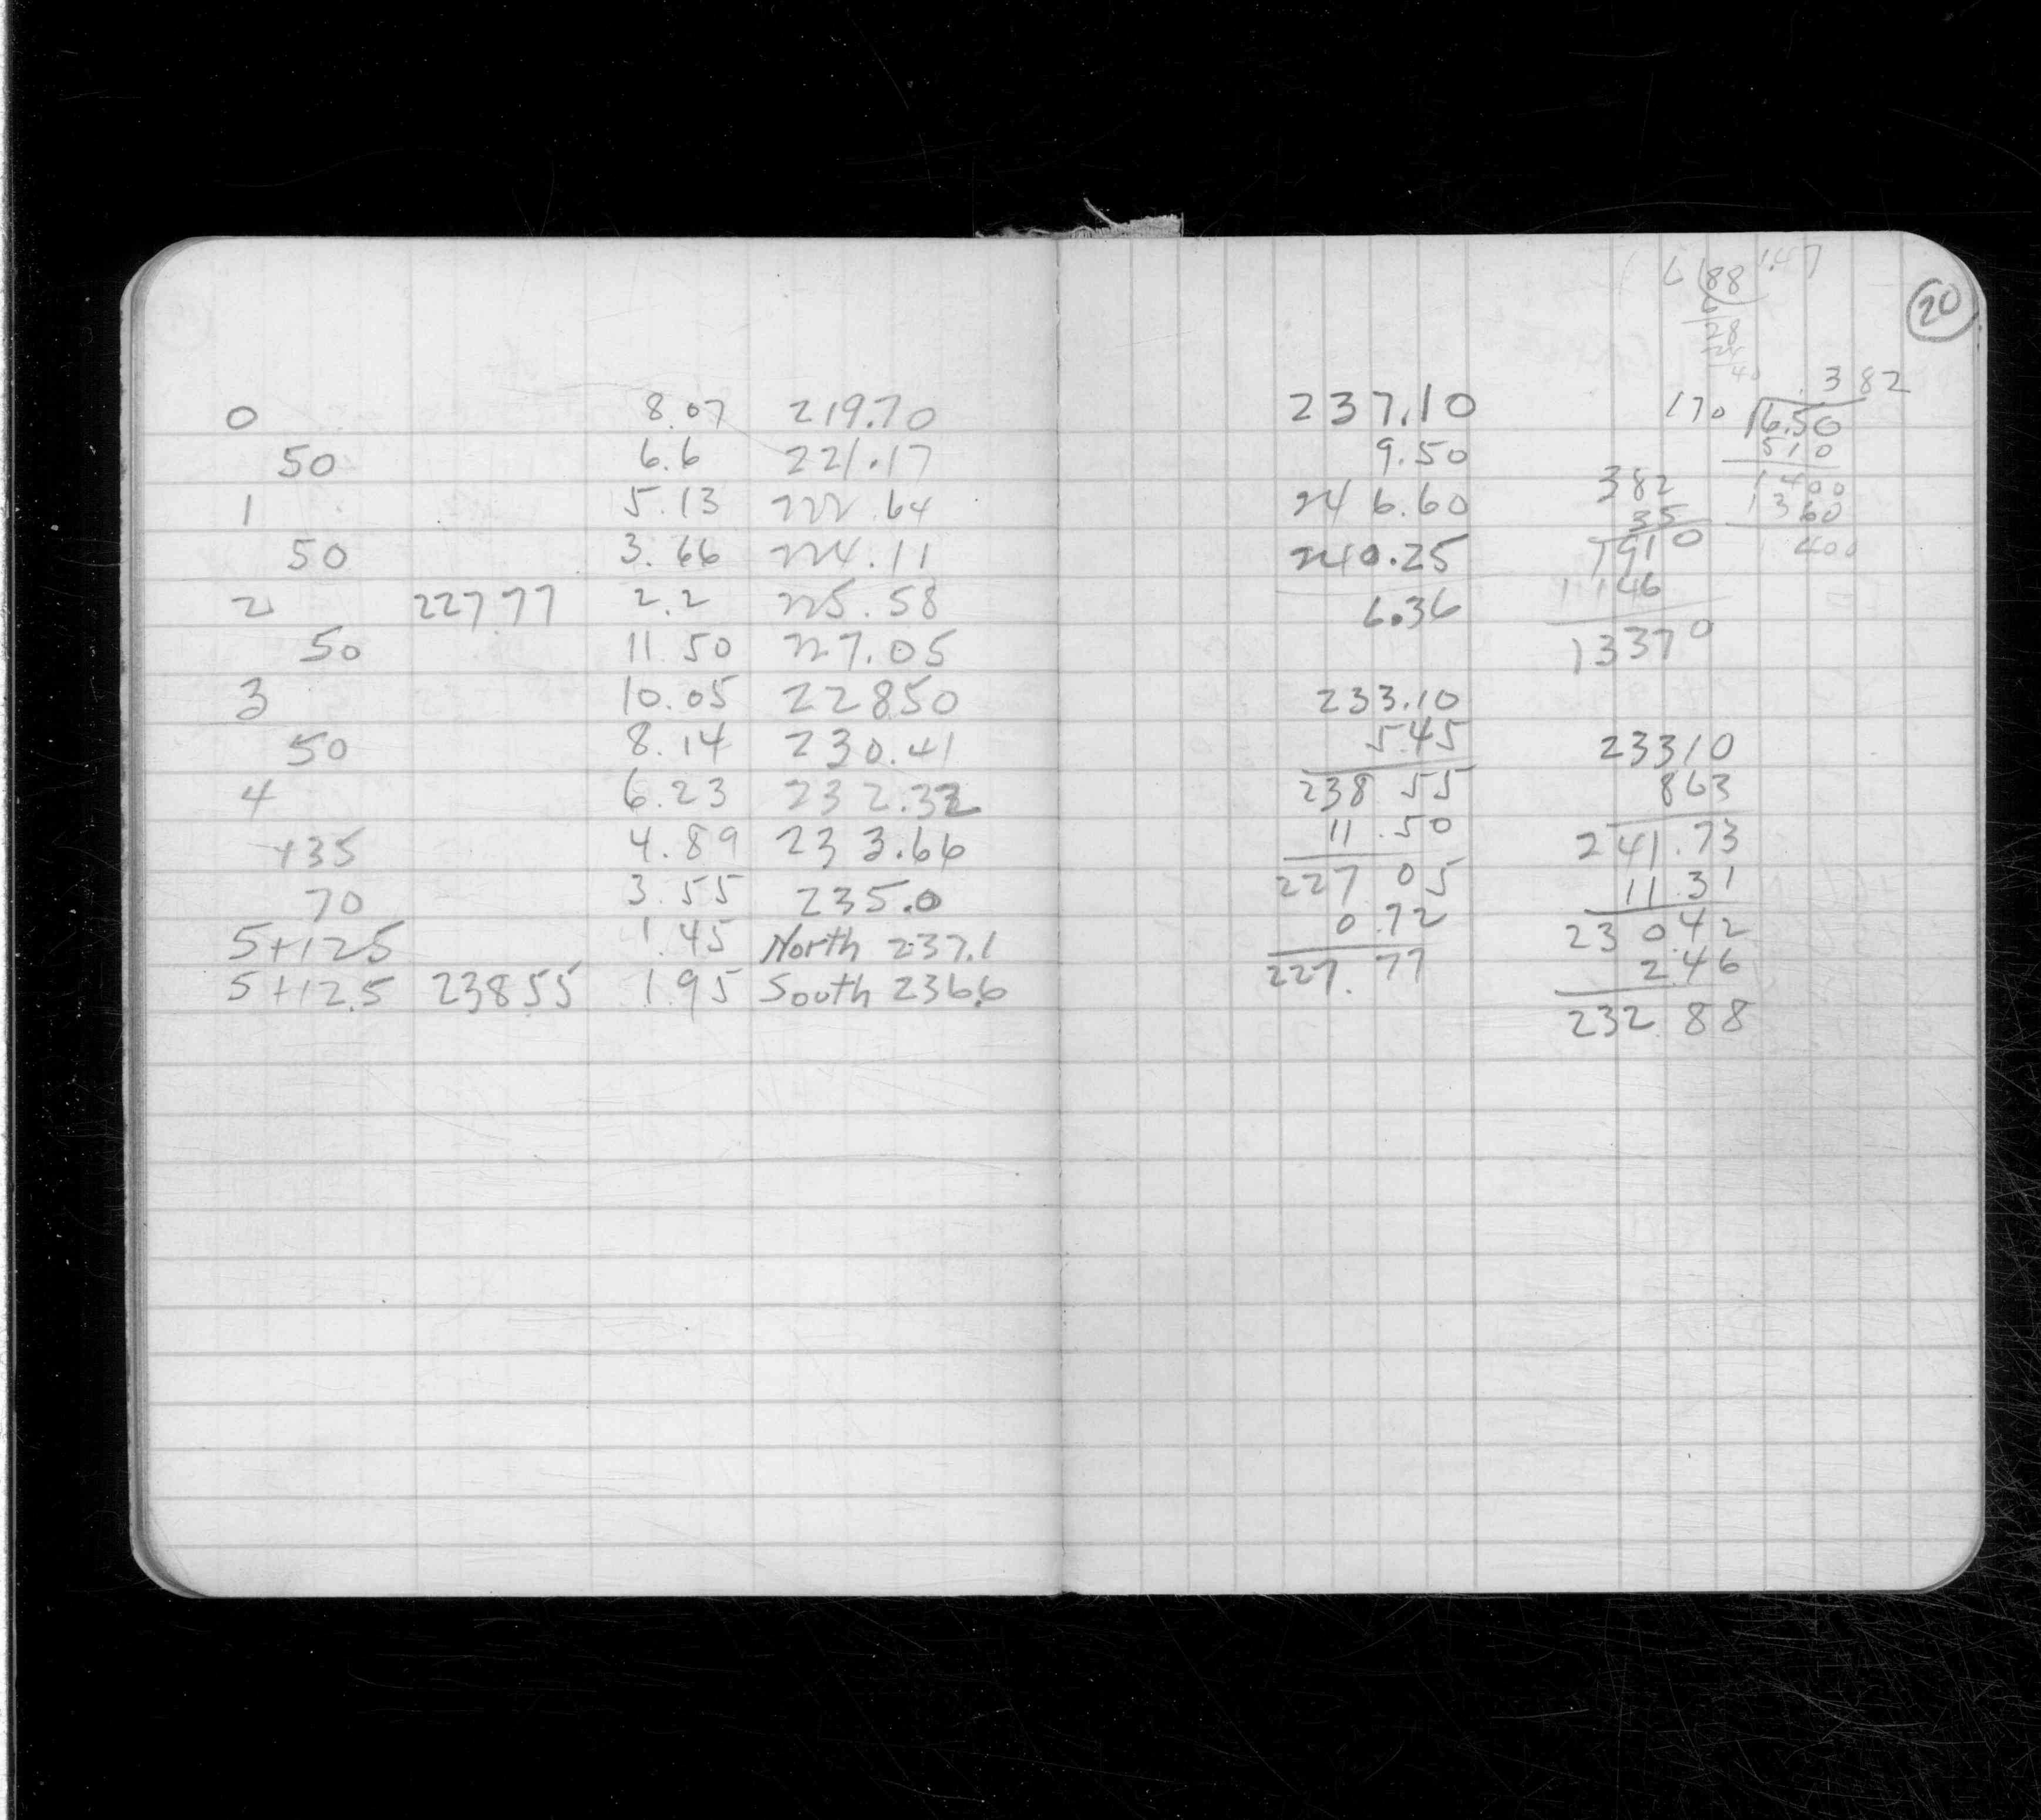 0 8.07 219.70
50 6.6 221.17
1 5.13 222.64
50 3.66 224.11
2 227 77 2.2 225.58
50 11 50 227.05
3 10.05 22850
50 8.14 230.41
4 6.23 232.32
+35 4.89 233.66
70 3.55 235.0
5+12.5 1.45 North 237.1
5+12.5 238 55 1.95 South 236.6
20
6 88 1.47
6
28
24
40
237.10
9.50
246.60
240.25
6.36
.382
170 6.50
510
1400
1360
400
382
35
1910
1146
13370
233.10
5.45
238 55
11.50
227 05
0.72
227.77
23310
863
241.73
11.31
230.42
2.46
232.88